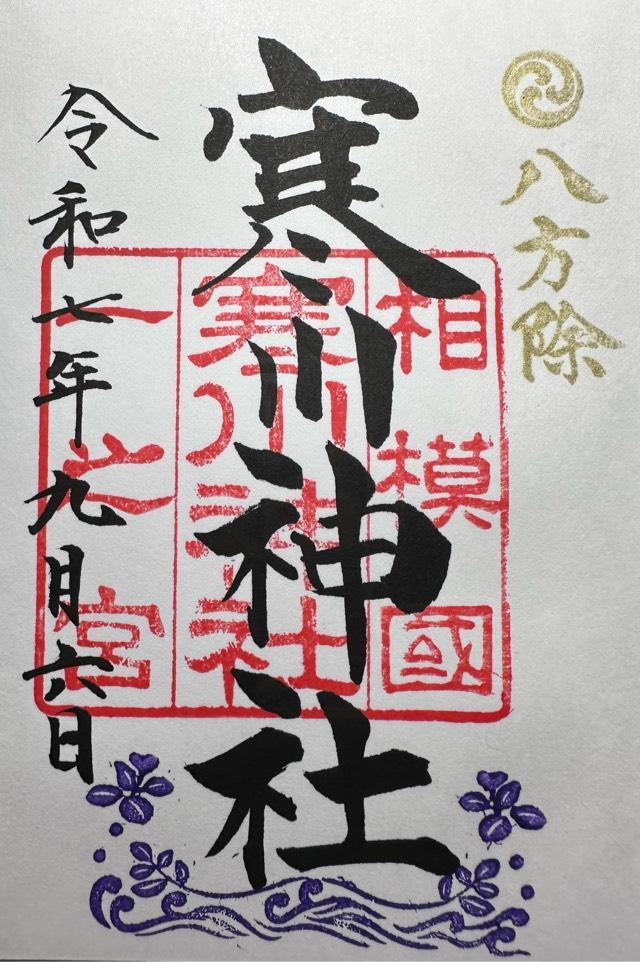 八方除
寒川神社
相模國
寒川神社
一之宮
令和七年九月六日